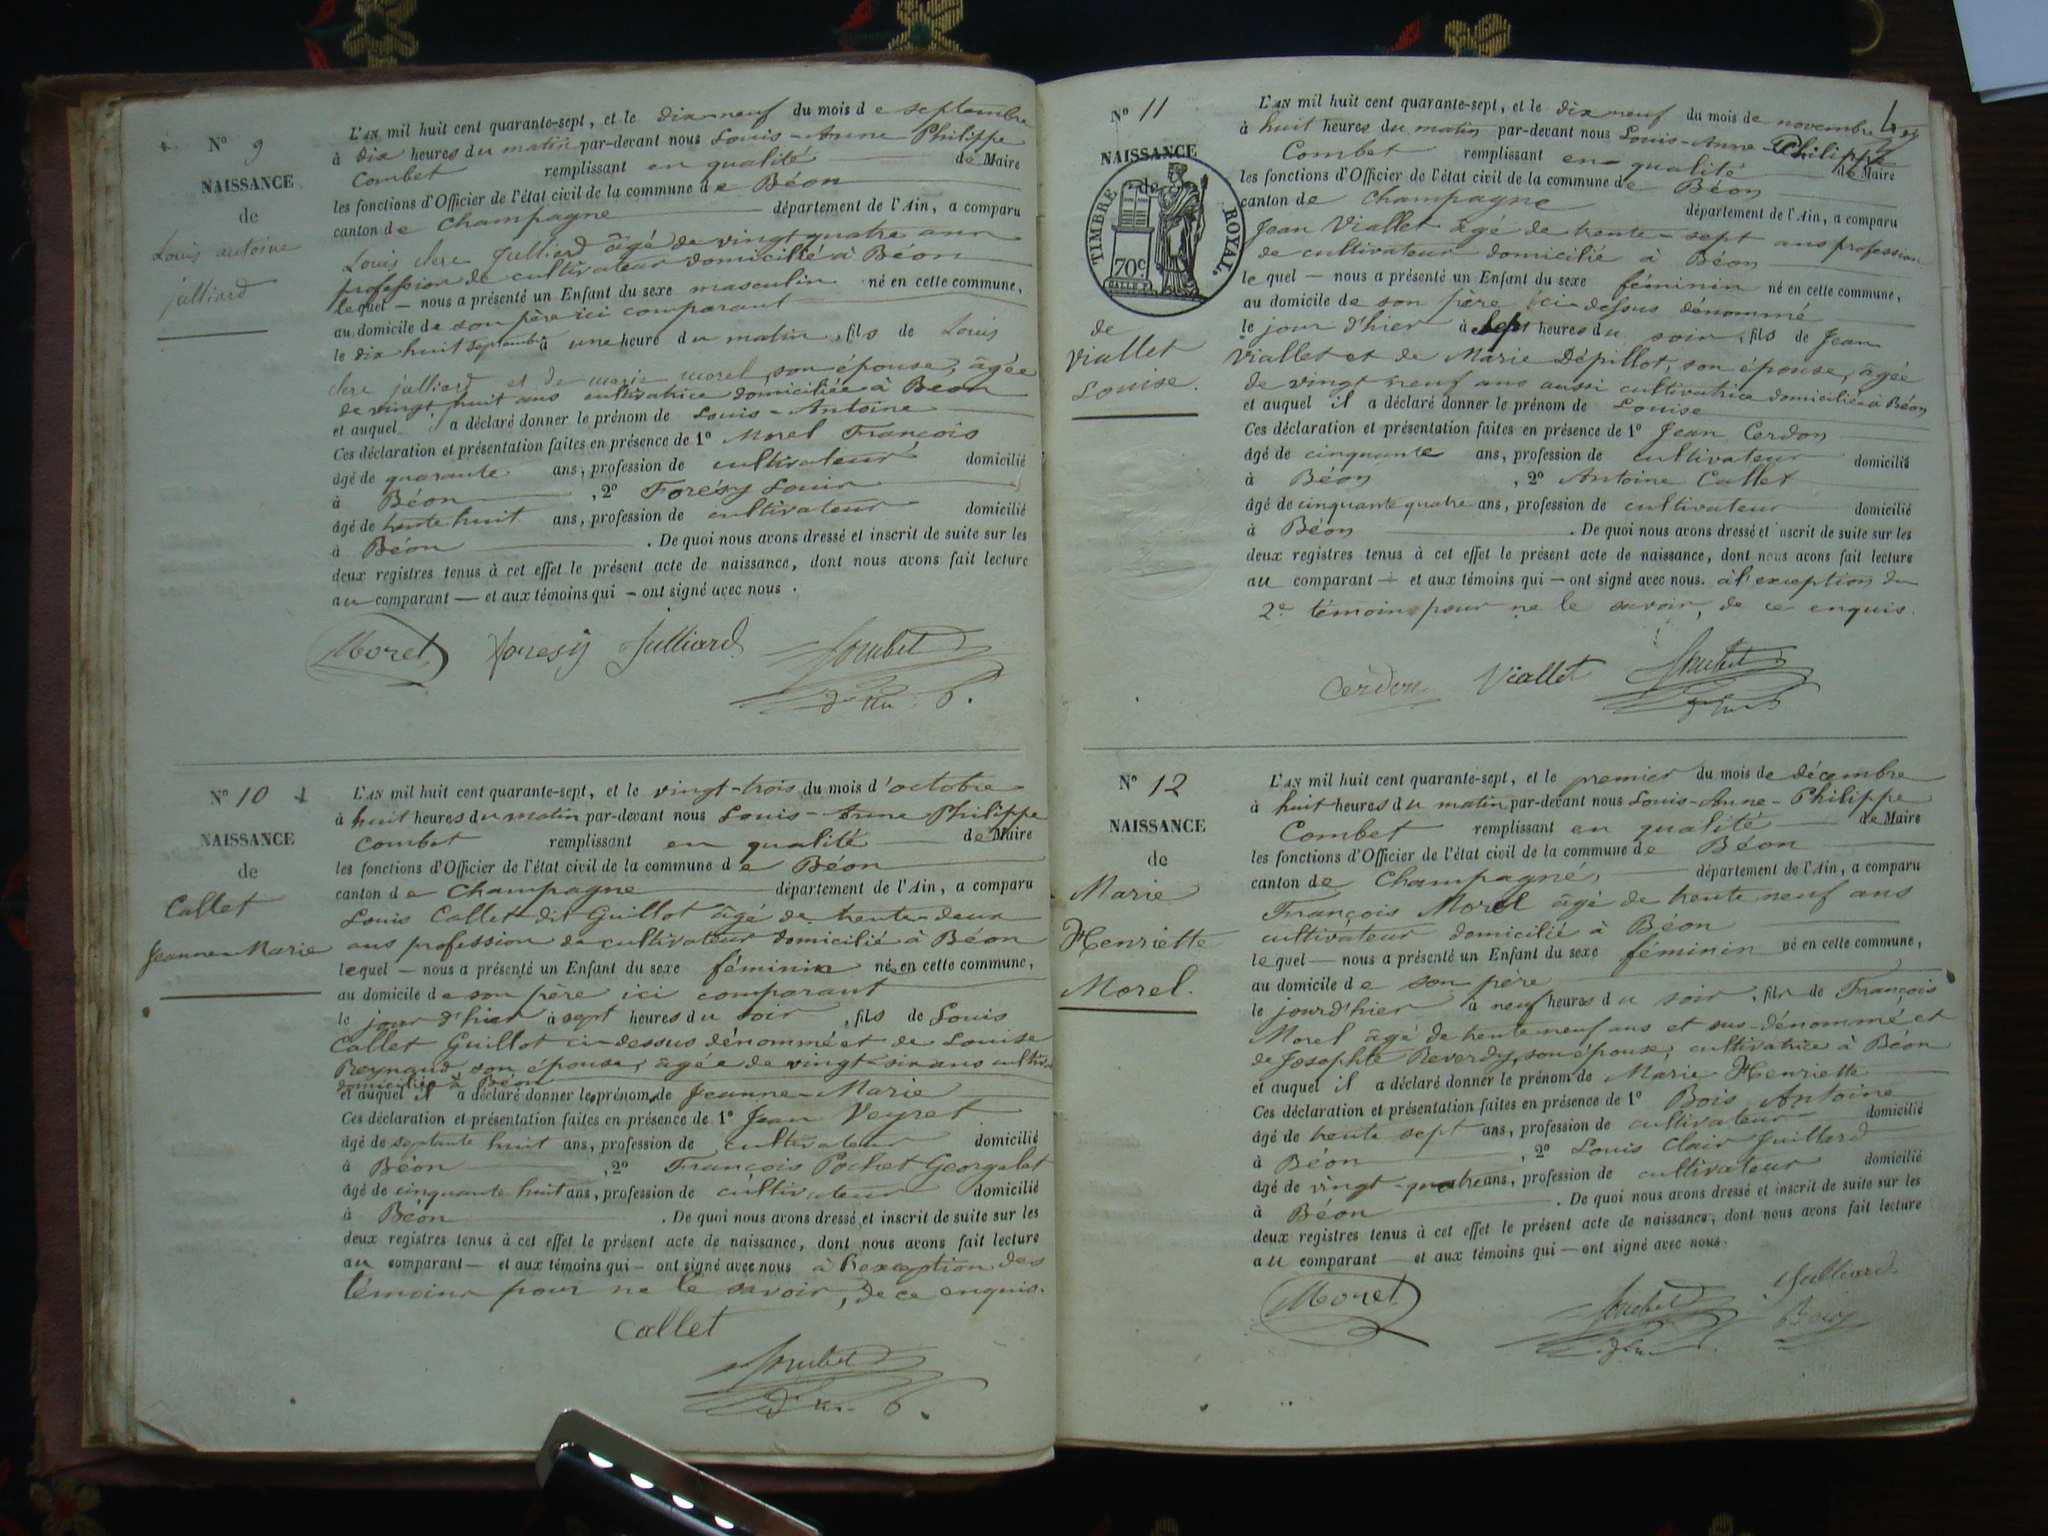 N° 9
NAISSANCE
de
Louis antoine
julliard
L'AN mil huit cent quarante-sept, et le dix-neuf du mois de septembre
à dix heures du matin par-devant nous Louis-Anne Philippe
Combet remplissant en qualité de Maire
les fonctions d'Officier de l'état civil de la commune de Béon
canton de Champagne département de l'Ain, a comparu
Louis clere Julliard âgé de vingt quatre ans
profession de cultivateur domicilié à Béon
lequel — nous a présenté un Enfant du sexe masculin né en cette commune,
au domicile de son père ici comparant
le dix huit septembre à une heure du matin, fils de Louis
clere julliard et de marie morel, son épouse, âgée
de vingt huit ans cultivatrice domiciliée à Béon
et auquel il a déclaré donner le prénom de Louis-Antoine
Ces déclaration et présentation faites en présence de 1° Morel François
âgé de quarante ans, profession de cultivateur domicilié
à Béon, 2° Forésy Louis
âgé de trente huit ans, profession de cultivateur domicilié
à Béon. De quoi nous avons dressé et inscrit de suite sur les
deux registres tenus à cet effet le présent acte de naissance, dont nous avons fait lecture
au comparant — et aux témoins qui — ont signé avec nous.
Morel Foresÿ Julliard Combet
N° 10
NAISSANCE
de
Callet
Jeanne-Marie
L'AN mil huit cent quarante-sept, et le vingt-trois du mois d'octobre
à huit heures du matin par-devant nous Louis-Anne Philippe
Combet remplissant en qualité de Maire
les fonctions d'Officier de l'état civil de la commune de Béon
canton de Champagne département de l'Ain, a comparu
Louis Callet dit Guillot âgé de trente-deux
ans profession de cultivateur domicilié à Béon
lequel — nous a présenté un Enfant du sexe féminin né en cette commune,
au domicile de son père ici comparant
le jour d'hier à sept heures du soir, fils de Louis
Callet Guillot ci-dessus dénommé et de Louise
Reynaud son épouse, âgée de vingt-six ans
domiciliée à Béon
et auquel il a déclaré donner le prénom de Jeanne-Marie
Ces déclaration et présentation faites en présence de 1° Jean Veyret
âgé de septante huit ans, profession de cultivateur domicilié
à Béon, 2° François Pochet Georgelet
âgé de cinquante huit ans, profession de cultivateur domicilié
à Béon. De quoi nous avons dressé et inscrit de suite sur les
deux registres tenus à cet effet le présent acte de naissance, dont nous avons fait lecture
au comparant — et aux témoins qui — ont signé avec nous à l'exception des
témoins pour ne le savoir, de ce enquis.
Callet
Combet
N° 11
NAISSANCE
de
TIMBRE ROYAL.
70c
de
Viallet
Louise.
L'AN mil huit cent quarante-sept, et le dix neuf du mois de novembre
à huit heures du matin par-devant nous Louis-Anne-Philippe
Combet remplissant en qualité de Maire
les fonctions d'Officier de l'état civil de la commune de Béon
canton de Champagne département de l'Ain, a comparu
Jean Viallet âgé de trente-sept ans profession
de cultivateur domicilié à Béon
lequel — nous a présenté un Enfant du sexe féminin né en cette commune,
au domicile de son père ci-dessus dénommé
le jour d'hier à sept heures du soir, fils de Jean
Viallet et de Marie Dépillot, son épouse, âgée
de vingt neuf ans aussi cultivatrice domiciliée à Béon
et auquel il a déclaré donner le prénom de Louise
Ces déclaration et présentation faites en présence de 1° Jean Cerdon
âgé de cinquante ans, profession de cultivateur domicilié
à Béon, 2° Antoine Callet
âgé de cinquante quatre ans, profession de cultivateur domicilié
à Béon. De quoi nous avons dressé et inscrit de suite sur les
deux registres tenus à cet effet le présent acte de naissance, dont nous avons fait lecture
au comparant — et aux témoins qui — ont signé avec nous. à l'exception du
2e témoin pour ne le savoir, de ce enquis.
Cerdon Viallet Combet
N° 12
NAISSANCE
de
Marie
Henriette
Morel.
L'AN mil huit cent quarante-sept, et le premier du mois de décembre
à huit heures du matin par-devant nous Louis-Anne-Philippe
Combet remplissant en qualité de Maire
les fonctions d'Officier de l'état civil de la commune de Béon
canton de Champagne, département de l'Ain, a comparu
François Morel âgé de trente neuf ans
cultivateur domicilié à Béon
lequel — nous a présenté un Enfant du sexe féminin né en cette commune,
au domicile de son père
le jour d'hier à neuf heures du soir, fils de François
Morel âgé de trente neuf ans et sus-dénommé et
de Josephte Reverdy, son épouse, cultivatrice à Béon
et auquel il a déclaré donner le prénom de Marie Henriette
Ces déclaration et présentation faites en présence de 1° Bois Antoine
âgé de trente sept ans, profession de cultivateur domicilié
à Béon, 2° Louis Clair Juillard
âgé de vingt-quatre ans, profession de cultivateur domicilié
à Béon. De quoi nous avons dressé et inscrit de suite sur les
deux registres tenus à cet effet le présent acte de naissance, dont nous avons fait lecture
au comparant — et aux témoins qui — ont signé avec nous.
Morel Combet Julliard
Bois